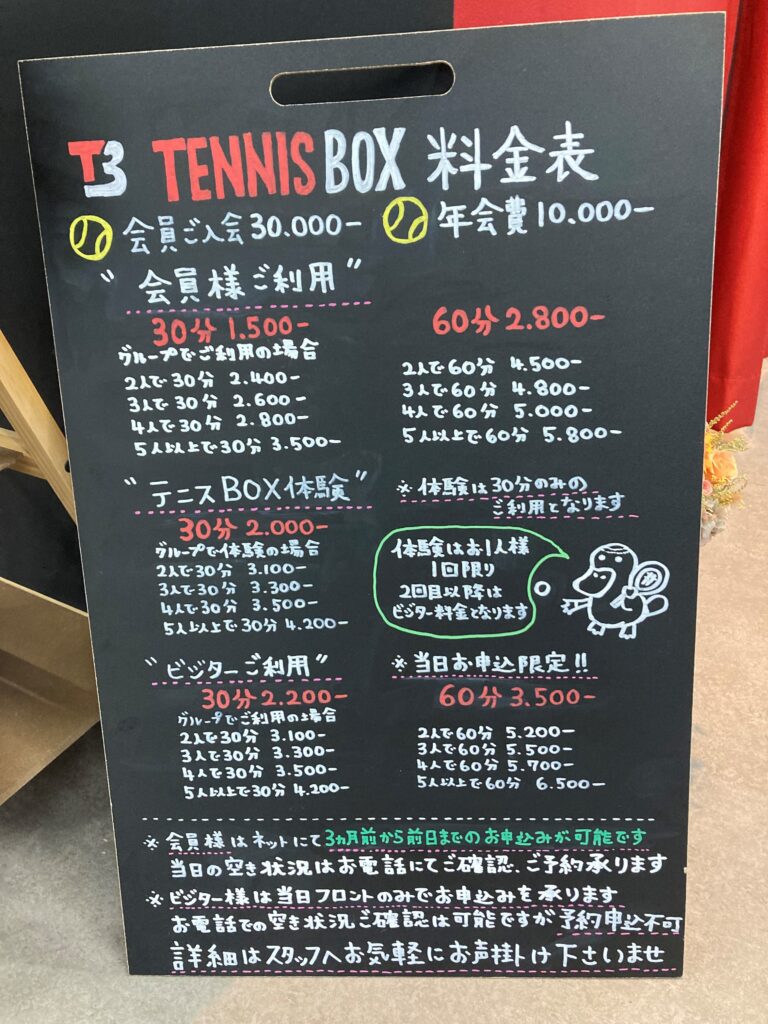 TB TENNIS BOX 料金表
会員ご入会 30.000- 年会費 10.000-
"会員様ご利用"
30分 1.500-
グループでご利用の場合
2人で30分 2.400-
3人で30分 2.600-
4人で30分 2.800-
5人以上で30分 3.500-
60分 2.800-
2人で60分 4.500-
3人で60分 4.800-
4人で60分 5.000-
5人以上で60分 5.800-
"テニスBOX体験"
30分 2.000-
グループで体験の場合
2人で30分 3.100-
3人で30分 3.300-
4人で30分 3.500-
5人以上で30分 4.200-
※体験は30分のみの
ご利用となります
体験はお1人様
1回限り
2回目以降は
ビジター料金となります
"ビジターご利用"
30分 2.200-
グループでご利用の場合
2人で30分 3.100-
3人で30分 3.300-
4人で30分 3.500-
5人以上で30分 4.200-
※当日お申込限定!!
60分 3.500-
2人で60分 5.200-
3人で60分 5.500-
4人で60分 5.700-
5人以上で60分 6.500-
※会員様はネットにて3ヵ月前から前日までのお申込みが可能です
当日の空き状況はお電話にてご確認、ご予約承ります
※ビジター様は当日フロントのみでお申込みを承ります
お電話での空き状況ご確認は可能ですが予約申込不可
詳細はスタッフへお気軽にお声掛け下さいませ